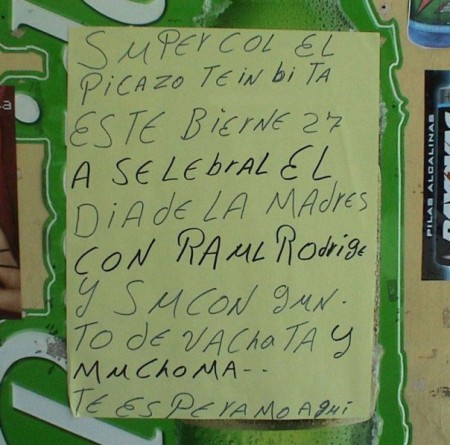 SUPERCOL EL
PICAZO TE in bi TA
ESTE BIERNE 27
A SELEBRAL EL
DIA de LA MAdRes
CON RAUL RODRige
Y SU CON gun.
TO de VACHATA Y
MUCHO MA--
TE ESPERAMO Agui
PILAS ALCALINAS